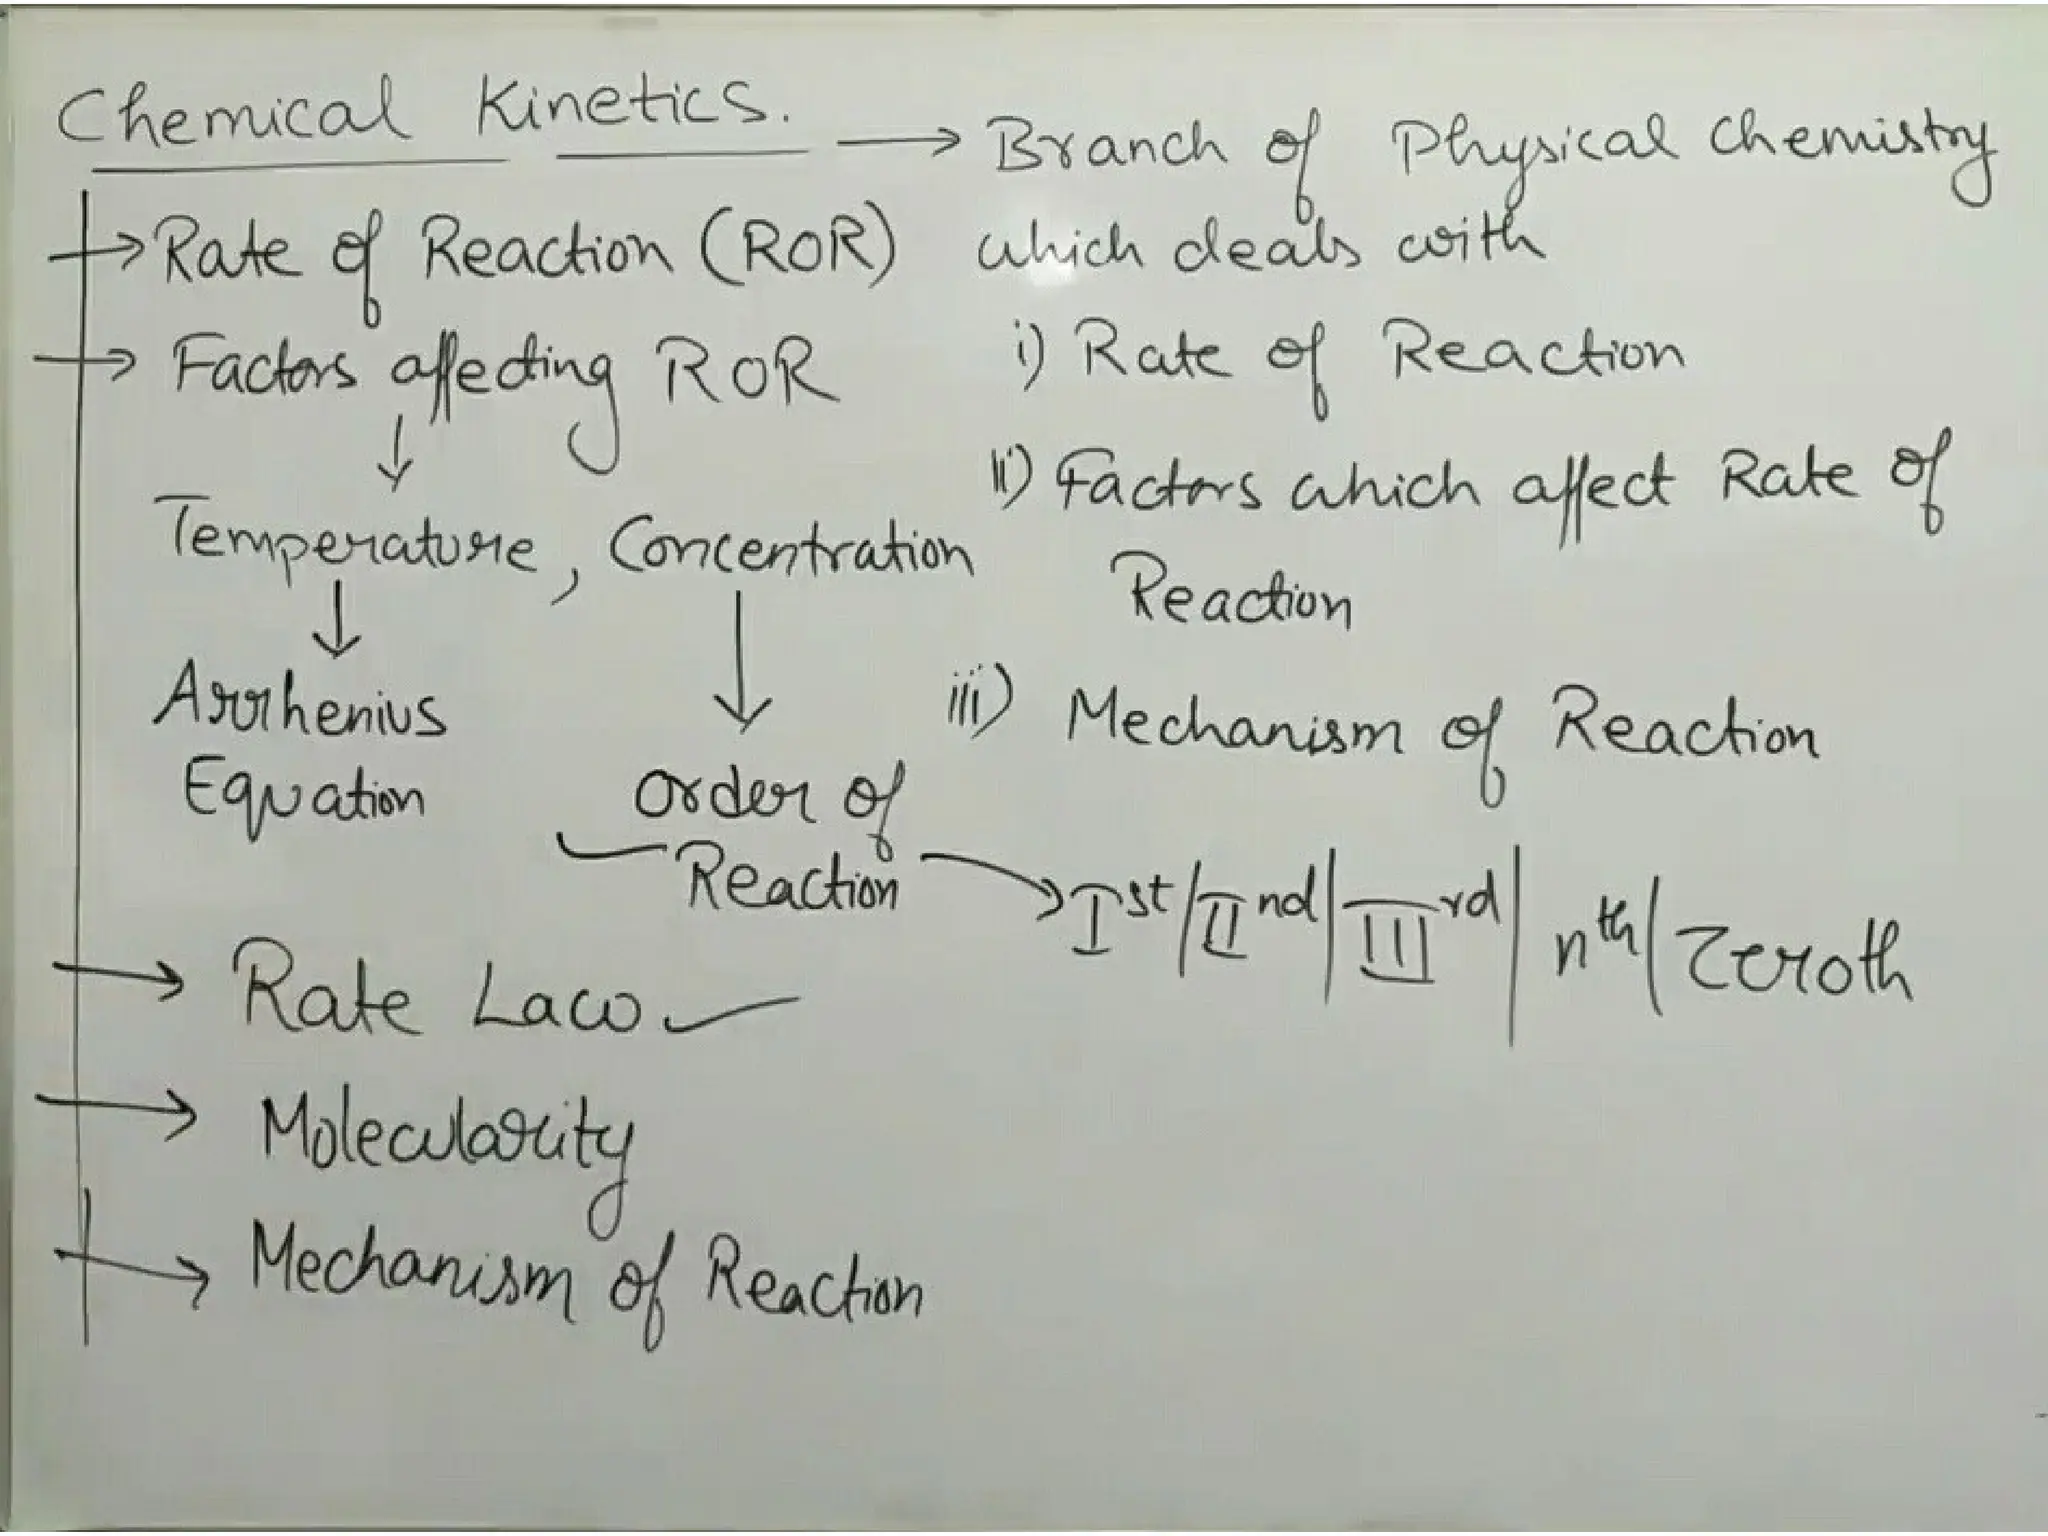 Chemical Kinetics. → Branch of Physical Chemistry
which deals with
i) Rate of Reaction
ii) Factors which affect Rate of
Reaction
iii) Mechanism of Reaction
→ Rate of Reaction (ROR)
→ Factors affecting ROR
↓
Temperature, Concentration
↓ ↓
Arrhenius
Equation
Order of
Reaction → Ist/IInd/IIIrd/nth/Zeroth
→ Rate Law
→ Molecularity
→ Mechanism of Reaction